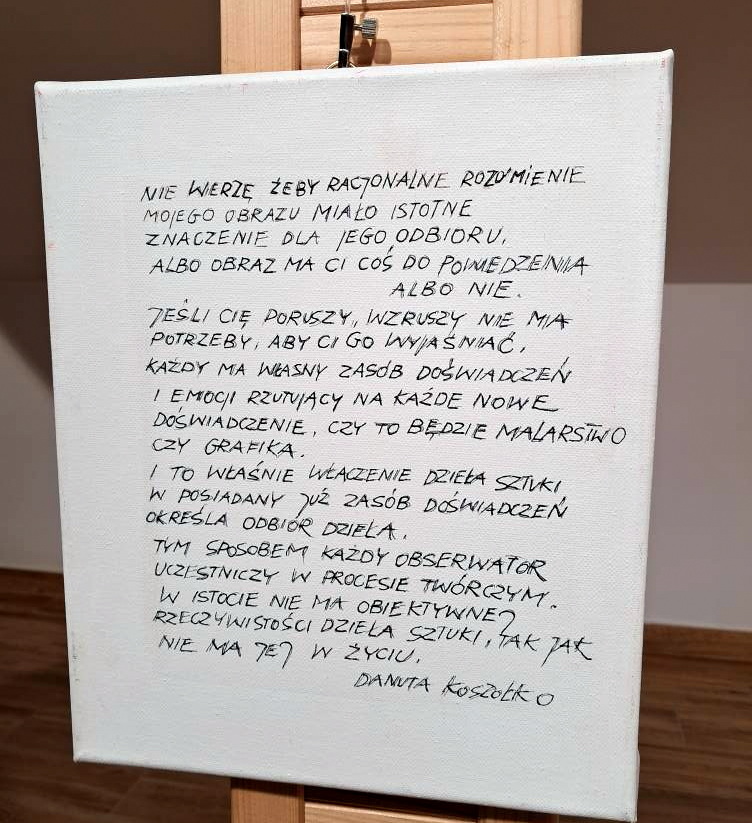 NIE WIERZĘ ŻEBY RACJONALNE ROZUMIENIE
MOJEGO OBRAZU MIAŁO ISTOTNE
ZNACZENIE DLA JEGO ODBIORU,
ALBO OBRAZ MA CI COŚ DO POWIEDZENIA
ALBO NIE.
JEŚLI CIĘ PORUSZY, WZRUSZY NIE MA
POTRZEBY, ABY CI GO WYJAŚNIAĆ,
KAŻDY MA WŁASNY ZASÓB DOŚWIADCZEŃ
I EMOCJI RZUTUJĄCY NA KAŻDE NOWE
DOŚWIADCZENIE, CZY TO BĘDZIE MALARSTWO
CZY GRAFIKA.
I TO WŁAŚNIE WŁĄCZENIE DZIEŁA SZTUKI
W POSIADANY JUŻ ZASÓB DOŚWIADCZEŃ
OKREŚLA ODBIÓR DZIEŁA.
TYM SPOSOBEM KAŻDY OBSERWATOR
UCZESTNICZY W PROCESIE TWÓRCZYM.
W ISTOCIE NIE MA OBIEKTYWNEJ
RZECZYWISTOŚCI DZIEŁA SZTUKI, TAK JAK
NIE MA JEJ W ŻYCIU.
DANUTA KOSZOŁKO